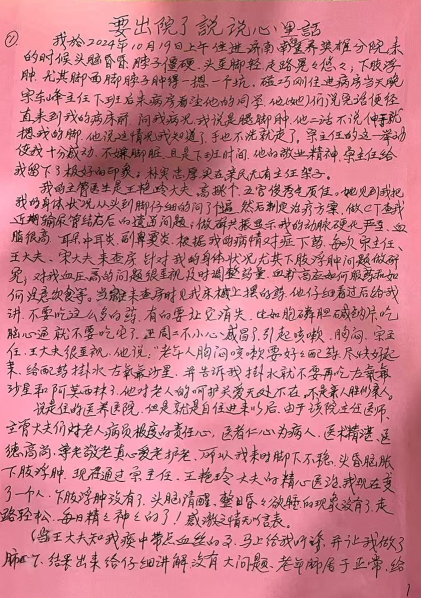 要出院了说说心里话
①
我於2024年10月19日上午住进济南 医养英雄分院 来
的时候头脑昏昏 脖子僵硬 头重脚轻走路晃晃悠悠 下肢浮
肿 尤其脚面脚脖子肿得一摁一个坑 碰巧刚住进病房当天晚
宋 主任下班后来病房看望他的同学 他(她)们说完话便径
直来到我的病床前 问我病况 我说是腿脚肿 他二话不说伸手就
摁我的脚 他说这情况我知道了 手也不洗就走了 宋主任的这一举动
使我十分感动 不嫌脚脏 且是下班时间 他的敬业精神 宋主任给
我留下了极好的印象 朴实忠厚 平民 没有主任架子
我的主管医生是王艳玲大夫 高挑个 五官俊秀气质佳 她见到我把
我的身体状况从头到脚仔细的问了个遍 然后制定治疗方案 做CT查我
近期输尿管结石后的遗留问题 做 共振显示我的动脉硬化严重 血
脂很高 耳 中耳炎 副鼻窦炎 根据我的病情对症下药 每次宋主任、
王大夫、宋大夫来查房 针对我的身体状况尤其下肢浮肿问题做研
究 对我血压高的问题很重视及时调整药量 血 高应如何服药和如
何注意饮食等 当 来查房时见我床 上摆的药 他仔细看过后给我
讲 不要吃这么多的药 有的要让它消失 比如胞磷胆碱钠片 吃
脑心通就不要吃它了 上周二不小心感冒了 引起咳嗽 胸闷 宋主
任、王大夫很重视 他说:“老年人胸闷咳嗽要好好配药 尽快好起
来 给配药挂水左氧氟沙星 并告诉我挂水就不要再吃左氧氟
沙星和阿莫西林了 他对老人的呵护关爱无处不在 不是亲人胜似亲人
说是住的医养医院 但是就是自住进来以后 由于该院主任医师、
主管大夫们对老人病员极度的责任心 医者仁心为病人 医术精湛 医
德高尚 尊老敬老真心爱老护老 所以我来时脚下不稳 头昏脑胀
下肢浮肿 现在通过宋主任、王艳玲大夫的精心医治 我现在变
了一个人 下肢浮肿没有了 头脑清醒 整日昏昏欲睡的现象没有了 走
路轻松 每日精精神神的了! 感激之情无以言表
(当王大夫知我痰中带点血丝 马上给我听诊 并让我做了
肺 结果出来给仔细讲解没有大问题 老年肺属于正常 给
1